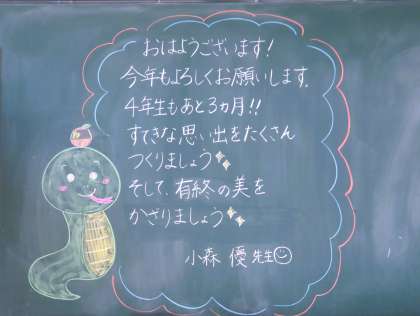 おはようございます!
今年もよろしくお願いします。
4年生もあと3ヵ月!!
すてきな思い出をたくさん
つくりましょう✨
そして、有終の美を
かざりましょう✨
小森 優 先生☺